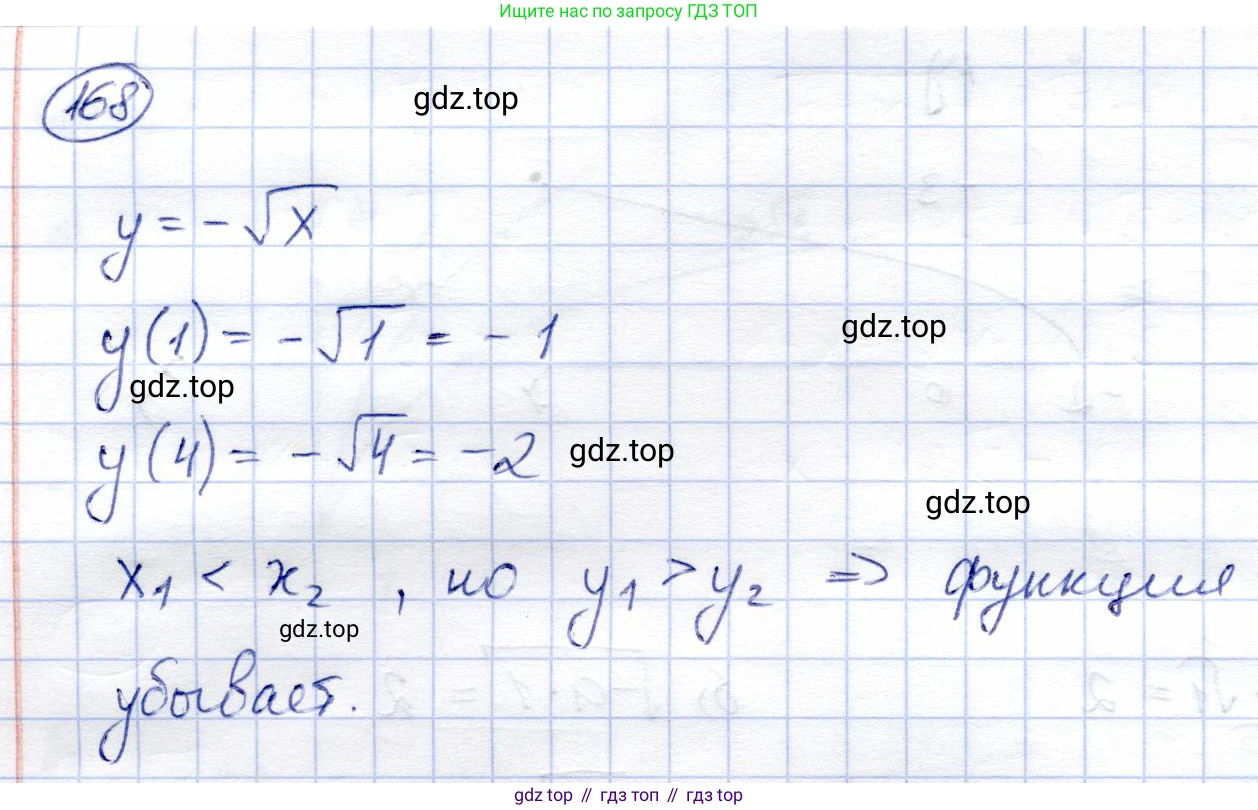 Ищите нас по запросу ГДЗ ТОП
168
gdz.top
y = -√x
y(1) = -√1 = -1
gdz.top
gdz.top
y(4) = -√4 = -2
gdz.top
gdz.top
x₁ < x₂, но y₁ > y₂ => функция
gdz.top
убывает.
gdz top // гдз топ // gdz top